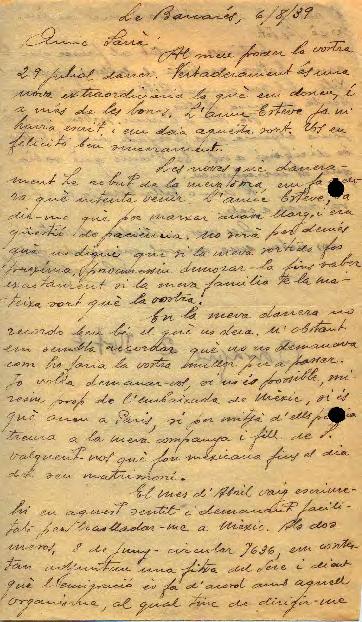 Le Barcarés, 6/8/39
Amic Sarrà:
Al meu poder la vostra
29 juliol darrer. Vertaderament és una
nova extraordinària la què em doneu, i
a més de les bones. L'amic Esteve ja m'
havia escrit i em deia aquesta sort. Us en
felicito ben sincerament.
Les noves que darrera-
ment he rebut de la meva dona, em fa
va què intenta venir. L'amic Esteve,
diu-me que per marxar anirà llarg, i era
qüestió de paciència. No serà per demés
què us digui que si la meva sortida fos
pròxima, procureu demorar-la fins saber
exactament si la meva família té la ma-
teixa sort què la vostra.
En la meva darrera no
recordo ben bé el què us deia. N'obstant
em sembla recordar què us demanava
com ho faria la vostra muller per a passar.
Jo volia demanar-vos, si us és possible, mi-
réssiu prop de l'embaixada de Mèxic, si és
què aneu a París, si per mitjà d'ells
treure a la meva companya i fill de F.
valguent-nos què fou mexicana fins el dia
del seu matrimoni.
El mes d'Abril vaig escriure-
hi en aquest sentit i demanant facili-
tats per traslladar-me a Mèxic. Als dos
mesos, 8 de Juny - circular 7636, em contes-
tan adjunteu una fitxa del Sere i dient
què l'emigració és fa d'acord amb aquell
organisme, al qual tinc de dirigir-me